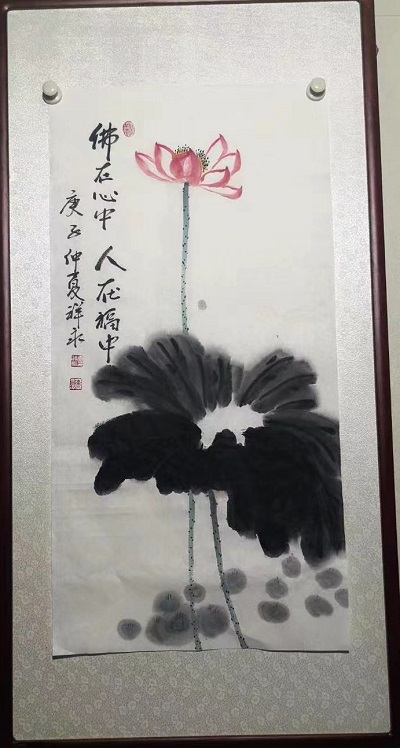 佛在心中 人在福中
庚子仲夏祥永